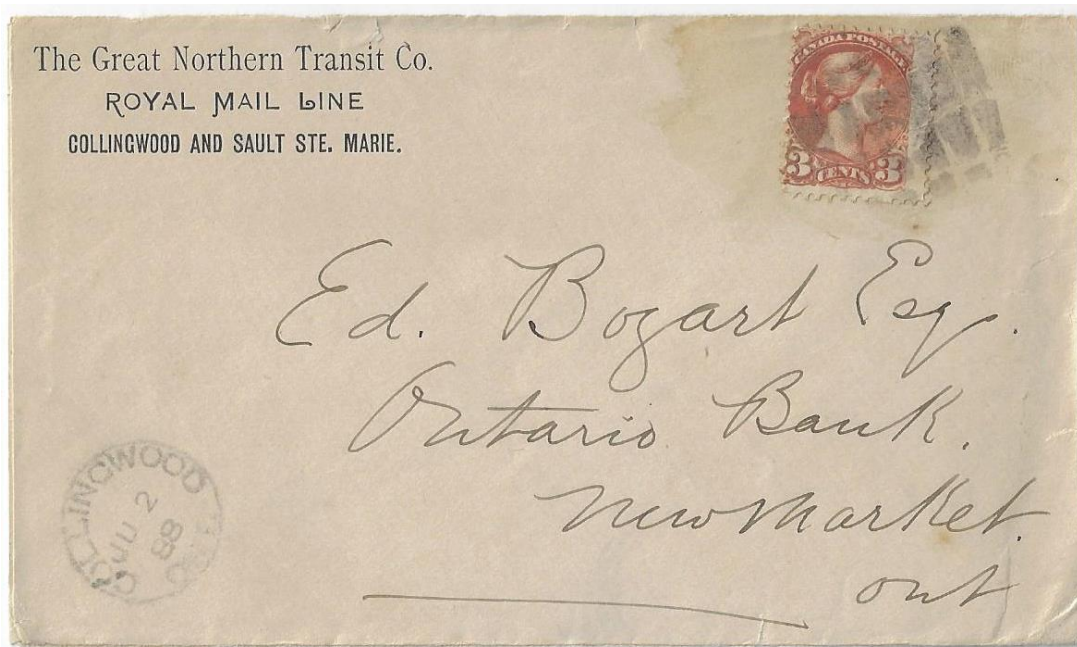 The Great Northern Transit Co.
ROYAL MAIL LINE
COLLINGWOOD AND SAULT STE. MARIE.
CANADA POSTAGE
3 CENTS 3
Ed. Bogart Esq.
Ontario Bank.
NewMarket.
Ont
COLLINGWOOD
JU 2
88